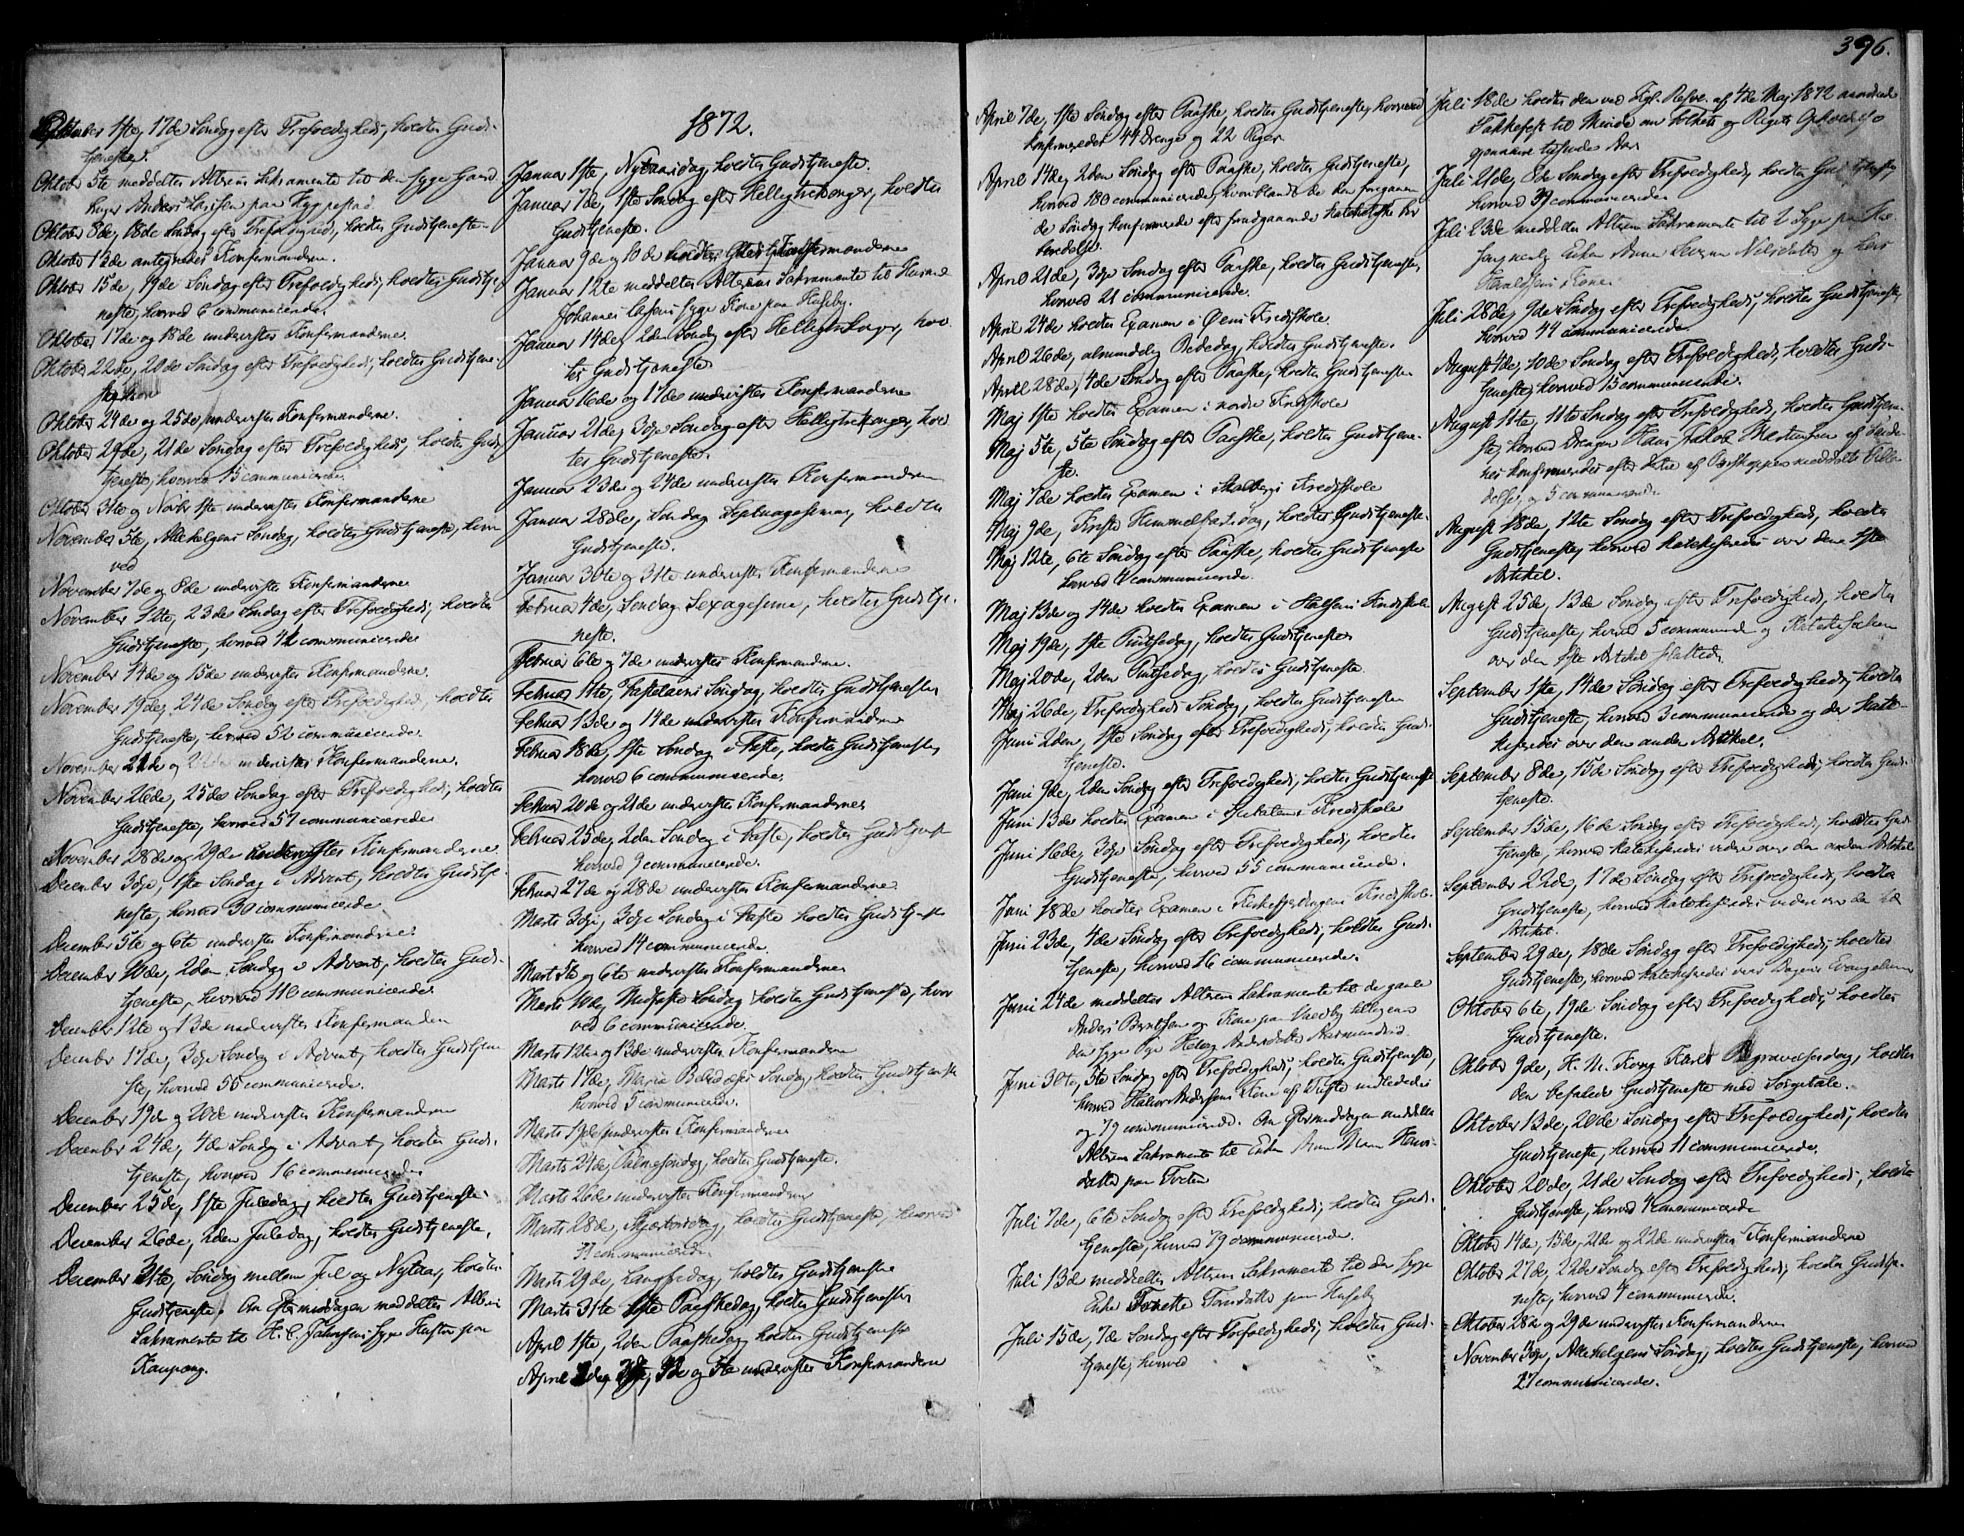 396.
Oktober 1ste, 17de Søndag efter Trefoldighed, holdtes Guds-
tjeneste.
Oktober 5te meddeltes Alterens Sakramente til den syge Gaard
bruger Anders
Oktober 8de, 18de Søndag efter Trefoldighed, holdtes Gudstjeneste.
Oktober 13de antegnedes Konfirmanderne.
Oktober 15de, 19de Søndag efter Trefoldighed, holdtes Gudstje-
neste, hvorved 6 communicerede.
Oktober 17de og 18de undervistes Konfirmanderne.
Oktober 22de, 20de Søndag efter Trefoldighed, holdtes Gudstjene-
Oktober 24de og 25de undervistes Konfirmanderne.
Oktober 29de, 21de Søndag efter Trefoldighed, holdtes Guds-
tjeneste, hvorved 15 communicerede.
Oktober 31te og Novbr 1ste undervistes Konfirmanderne
November 5te, Allehelgens Søndag, holdtes Gudstjeneste, hvor
ved
November 7de og 8de undervistes Konfirmanderne
November 12te, 23de Søndag efter Trefoldighed, holdtes
Gudstjeneste, hvorved 72 communicerede
November 14de og 15de undervistes Konfirmanderne.
November 19de, 24de Søndag efter Trefoldighed, holdtes
Gudstjeneste, hvorved 52 communicerede.
November 21de og undervistes Konfirmanderne.
November 26de, 25de Søndag efter Trefoldighed, holdtes
Gudstjeneste, hvorved 57 communicerede
November 28de og 29de undervistes Konfirmanderne.
December 3die, 1ste Søndag i Advent, holdtes Gudstje-
neste, hvorved 30 communicerede
December 5te og 6te undervistes Konfirmanderne
December 10de, 2den Søndag i Advent, holdtes Guds-
tjeneste, hvorved 110 communicerede
December 12te og 13de undervistes Konfirmanden
December 17de, 3die Søndag i Advent, holdtes Gudstjene
ste, hvorved 50 communicerede.
December 19de og 20de undervistes Konfirmanderne
December 24de, 4de Søndag i Advent, holdtes Guds-
tjeneste, hvorved 16 communicerede
December 25de, 1ste Juledag, holdtes Gudstjeneste.
December 26de, 2den Juledag, holdtes Gudstjeneste.
December 31te, Søndag mellem Jul og Nytaar, holdtes
Gudstjeneste. Om Eftermiddagen meddeltes Alterens
Sakramente til H. C. Johnsens syge Hustru paa
Kaupang.
1872.
Januar 1ste, Nytaarsdag, holdtes Gudstjeneste.
Januar 7de, 1ste Søndag efter Helligtrekonger, holdtes
Gudstjeneste.
Januar 9de og 10de Konfirmanderne
Januar 12te meddeltes Alterens Sakramente til Husmd
Johannes syge Kone paa Huseby.
Januar 14de, 2den Søndag efter Helligtrekonger, hol-
tes Gudstjeneste
Januar 16de og 17de undervistes Konfirmanderne
Januar 21de, 3die Søndag efter Helligtrekonger, hol
tes Gudstjeneste.
Januar 23de og 24de undervistes Konfirmanderne
Januar 28de, Søndag Septuagesima, holdtes
Gudstjeneste.
Januar 30te og 31te undervistes Konfirmanderne
Februar 4de, Søndag Sexagesima, holdtes Gudstje-
neste.
Februar 6te og 7de undervistes Konfirmanderne.
Februar 11te, Fastelavns Søndag, holdtes Gudstjeneste
Februar 13de og 14de undervistes Konfirmanderne
Februar 18de, 1ste Søndag i Faste, holdtes Gudstjeneste,
hvorved 6 communicerede.
Februar 20de og 21de undervistes Konfirmanderne
Februar 25de, 2den Søndag i Faste, holdtes Gudstjeneste
hvorved 9 communicerede.
Februar 27de og 28de undervistes Konfirmanderne
Marts 3die, 3die Søndag i Faste holdtes Gudstjeneste
hvorved 14 communicerede.
Marts 5te og 6te undervistes Konfirmanderne
Marts 10de, Midfaste Søndag holdtes Gudstjeneste, hvor
ved 6 communicerede.
Marts 12te og 13de undervistes Konfirmanderne
Marts 17de, Maria Bebudelses Søndag, holdtes Gudstjeneste
hvorved 5 communicerede.
Marts 19de undervistes Konfirmanderne
Marts 24de, Palmesøndag, holdtes Gudstjeneste.
Marts 26de undervistes Konfirmanderne
Marts 28de, Skjærtorsdag, holdtes Gudstjeneste, hvorved
communicerede
Marts 29de, Langfredag, holdtes Gudstjeneste
Marts 31te 1ste Paaskedag, holdtes Gudstjeneste
April 1ste, 2den Paaskedag holdtes Gudstjeneste
April 2den, 3die, 4de og 5te undervistes Konfirmanderne
April 7de, 1ste Søndag efter Paaske, holdtes Gudstjeneste, hvorved
konfirmeredes 44 Drenge og 22 Piger
April 14de, 2den Søndag efter Paaske, holdtes Gudstjeneste,
hvorved 180 communicerede, hvoriblandt de den foregaaen
de Søndag konfirmerede efter forudgaaende katekhetiske For
beredelse.
April 21de, 3die Søndag efter Paaske, holdtes Gudstjeneste,
hvorved 21 communicerede.
April 24de holdtes Examen i Øens Kredsskole.
April 26de, almindelig Bededag, holdtes Gudstjeneste.
April 28de, 4de Søndag efter Paaske, holdtes Gudstjeneste
Maj 1ste holdtes Examen i nordre Kredsskole
Maj 5te, 5te Søndag efter Paaske, holdtes Gudstjene-
ste.
Maj 7de holdtes Examen i Skalbergs Kredsskole
Maj 9de, Kristi Himmelfartsdag, holdtes Gudstjeneste.
Maj 12te, 6te Søndag efter Paaske, holdtes Gudstjeneste
hvorved 4 communicerede.
Maj 13de og 14de holdtes Examen i Halsens Kredsskole
Maj 19de, 1ste Pintsedag, holdtes Gudstjeneste
Maj 20de, 2den Pintsedag, holdtes Gudstjeneste.
Maj 26de, Trefoldigheds Søndag, holdtes Gudstjeneste
Juni 2den, 1ste Søndag efter Trefoldighed, holdtes Guds-
tjeneste.
Juni 9de, 2den Søndag efter Trefoldighed, holdtes Gudstjeneste
Juni 13de holdtes Examen i Kredsskole
Juni 16de, 3die Søndag efter Trefoldighed, holdtes
Gudstjeneste, hvorved 55 communicerede.
Juni 18de holdtes Examen i Kredsskole.
Juni 23de, 4de Søndag efter Trefoldighed, holdtes Guds-
tjeneste, hvorved 16 communicerede.
Juni 24de meddeltes Alterens Sakramente til de gamle
Anders Berntsen og Kone paa tilligemed
den syge Pige Andersdatter
Juni 30te, 5te Søndag efter Trefoldighed, holdtes Gudstjeneste,
hvorved Andersens Kone af indlededes
og 79 communicerede. Om Eftermiddagen meddeltes
Alterens Sakramente til Enken
datter paa Tveten
Juli 7de, 6te Søndag efter Trefoldighed, holdtes Guds-
tjeneste, hvorved 79 communicerede.
Juli 13de meddeltes Alterens Sakramente til den syge
Enke paa Huseby
Juli 15de, 7de Søndag efter Trefoldighed, holdtes Guds-
tjeneste, hvorved
Juli 18de holdtes den ved Kgl. Resol. af 4de Maj 1872 anordnede
Takkefest til Minde om Folkets og Rigets
gjennem tusinde Aar
Juli 21de, 8de Søndag efter Trefoldighed, holdtes Gudstjeneste
hvorved 39 communicerede
Juli 23de meddeltes Alterens Sakramente til 2 Syge paa
Enken Anne Nilsdatter og
Kone.
Juli 28de, 9de Søndag efter Trefoldighed, holdtes Gudstjeneste,
hvorved 44 communicerede.
August 4de, 10de Søndag efter Trefoldighed, holdtes Guds-
tjeneste, hvorved 15 communicerede.
August 11te, 11te Søndag efter Trefoldighed, holdtes Gudstjene
ste, hvorved Drengen Hans Jakob Mortensen af
konfirmeredes efter dertil af Biskoppen meddelt Tilla
delse, og 5 communicerede
August 18de, 12te Søndag efter Trefoldighed, holdtes
Gudstjeneste, hvorved katekiseredes over den 1ste
Artikel.
August 25de, 13de Søndag efter Trefoldighed, holdtes
Gudstjeneste, hvorved 5 communicerede og Katekisation
over den 1ste Artikel sluttedes
September 1ste, 14de Søndag efter Trefoldighed, holdtes
Gudstjeneste, hvorved 3 communicerede og der kate-
kiseredes over den anden Artikel.
September 8de, 15de Søndag efter Trefoldighed, holdtes Guds-
tjeneste.
September 15de, 16de Søndag efter Trefoldighed, holdtes Guds-
tjeneste, hvorved katekiseredes videre over den anden Artikel
September 22de, 17de Søndag efter Trefoldighed, holdtes
Gudstjeneste, hvorved katekiseredes videre over den
Artikel.
September 29de, 18de Søndag efter Trefoldighed, holdtes
Gudstjeneste, hvorved katekiseredes over Dagens Evangelium
Oktober 6te, 19de Søndag efter Trefoldighed, holdtes
Gudstjeneste.
Oktober 9de, H. M. Kong Karls Begravelsesdag, holdtes
den befalede Gudstjeneste med Sørgetale.
Oktober 13de, 20de Søndag efter Trefoldighed, holdtes
Gudstjeneste, hvorved 11 communicerede.
Oktober 20de, 21de Søndag efter Trefoldighed, holdtes
Gudstjeneste, hvorved 4 communicerede
Oktober 14de, 15de, 21de og 22de undervistes Konfirmanderne
Oktober 27de, 22de Søndag efter Trefoldighed, holdtes Gudstje-
neste, hvorved 4 communicerede.
Oktober 28de og 29de undervistes Konfirmanderne
November 3die, Allehelgens Søndag, holdtes Gudstjeneste, hvorved
27 communicerede.